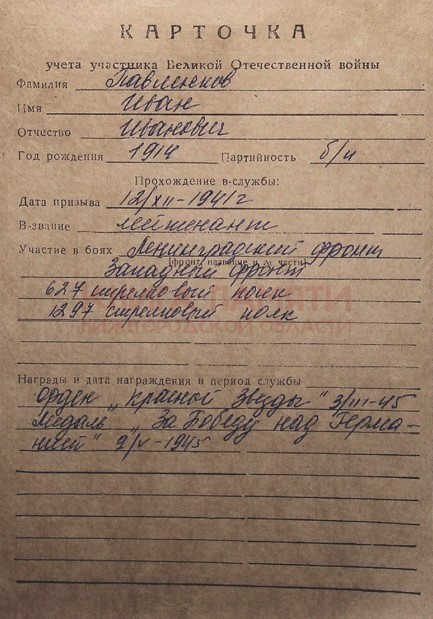 КАРТОЧКА
учета участника Великой Отечественной войны
Фамилия Павленков
Имя Иван
Отчество Иванович
Год рождения 1914 Партийность б/п
Прохождение в службы:
Дата призыва 12/XII-1941 г
В-звание лейтенант
Участие в боях Ленинградский фронт
(фронт, название и № части)
Западный фронт
627 стрелковый полк
1297 стрелковый полк
ПАМЯТИ
ОБЛАСТИ
Награды и дата награждения в период службы
Орден „Красной Звезды" 3/III-45
Медаль „За Победу над Герма-
нией" 9/V-1945